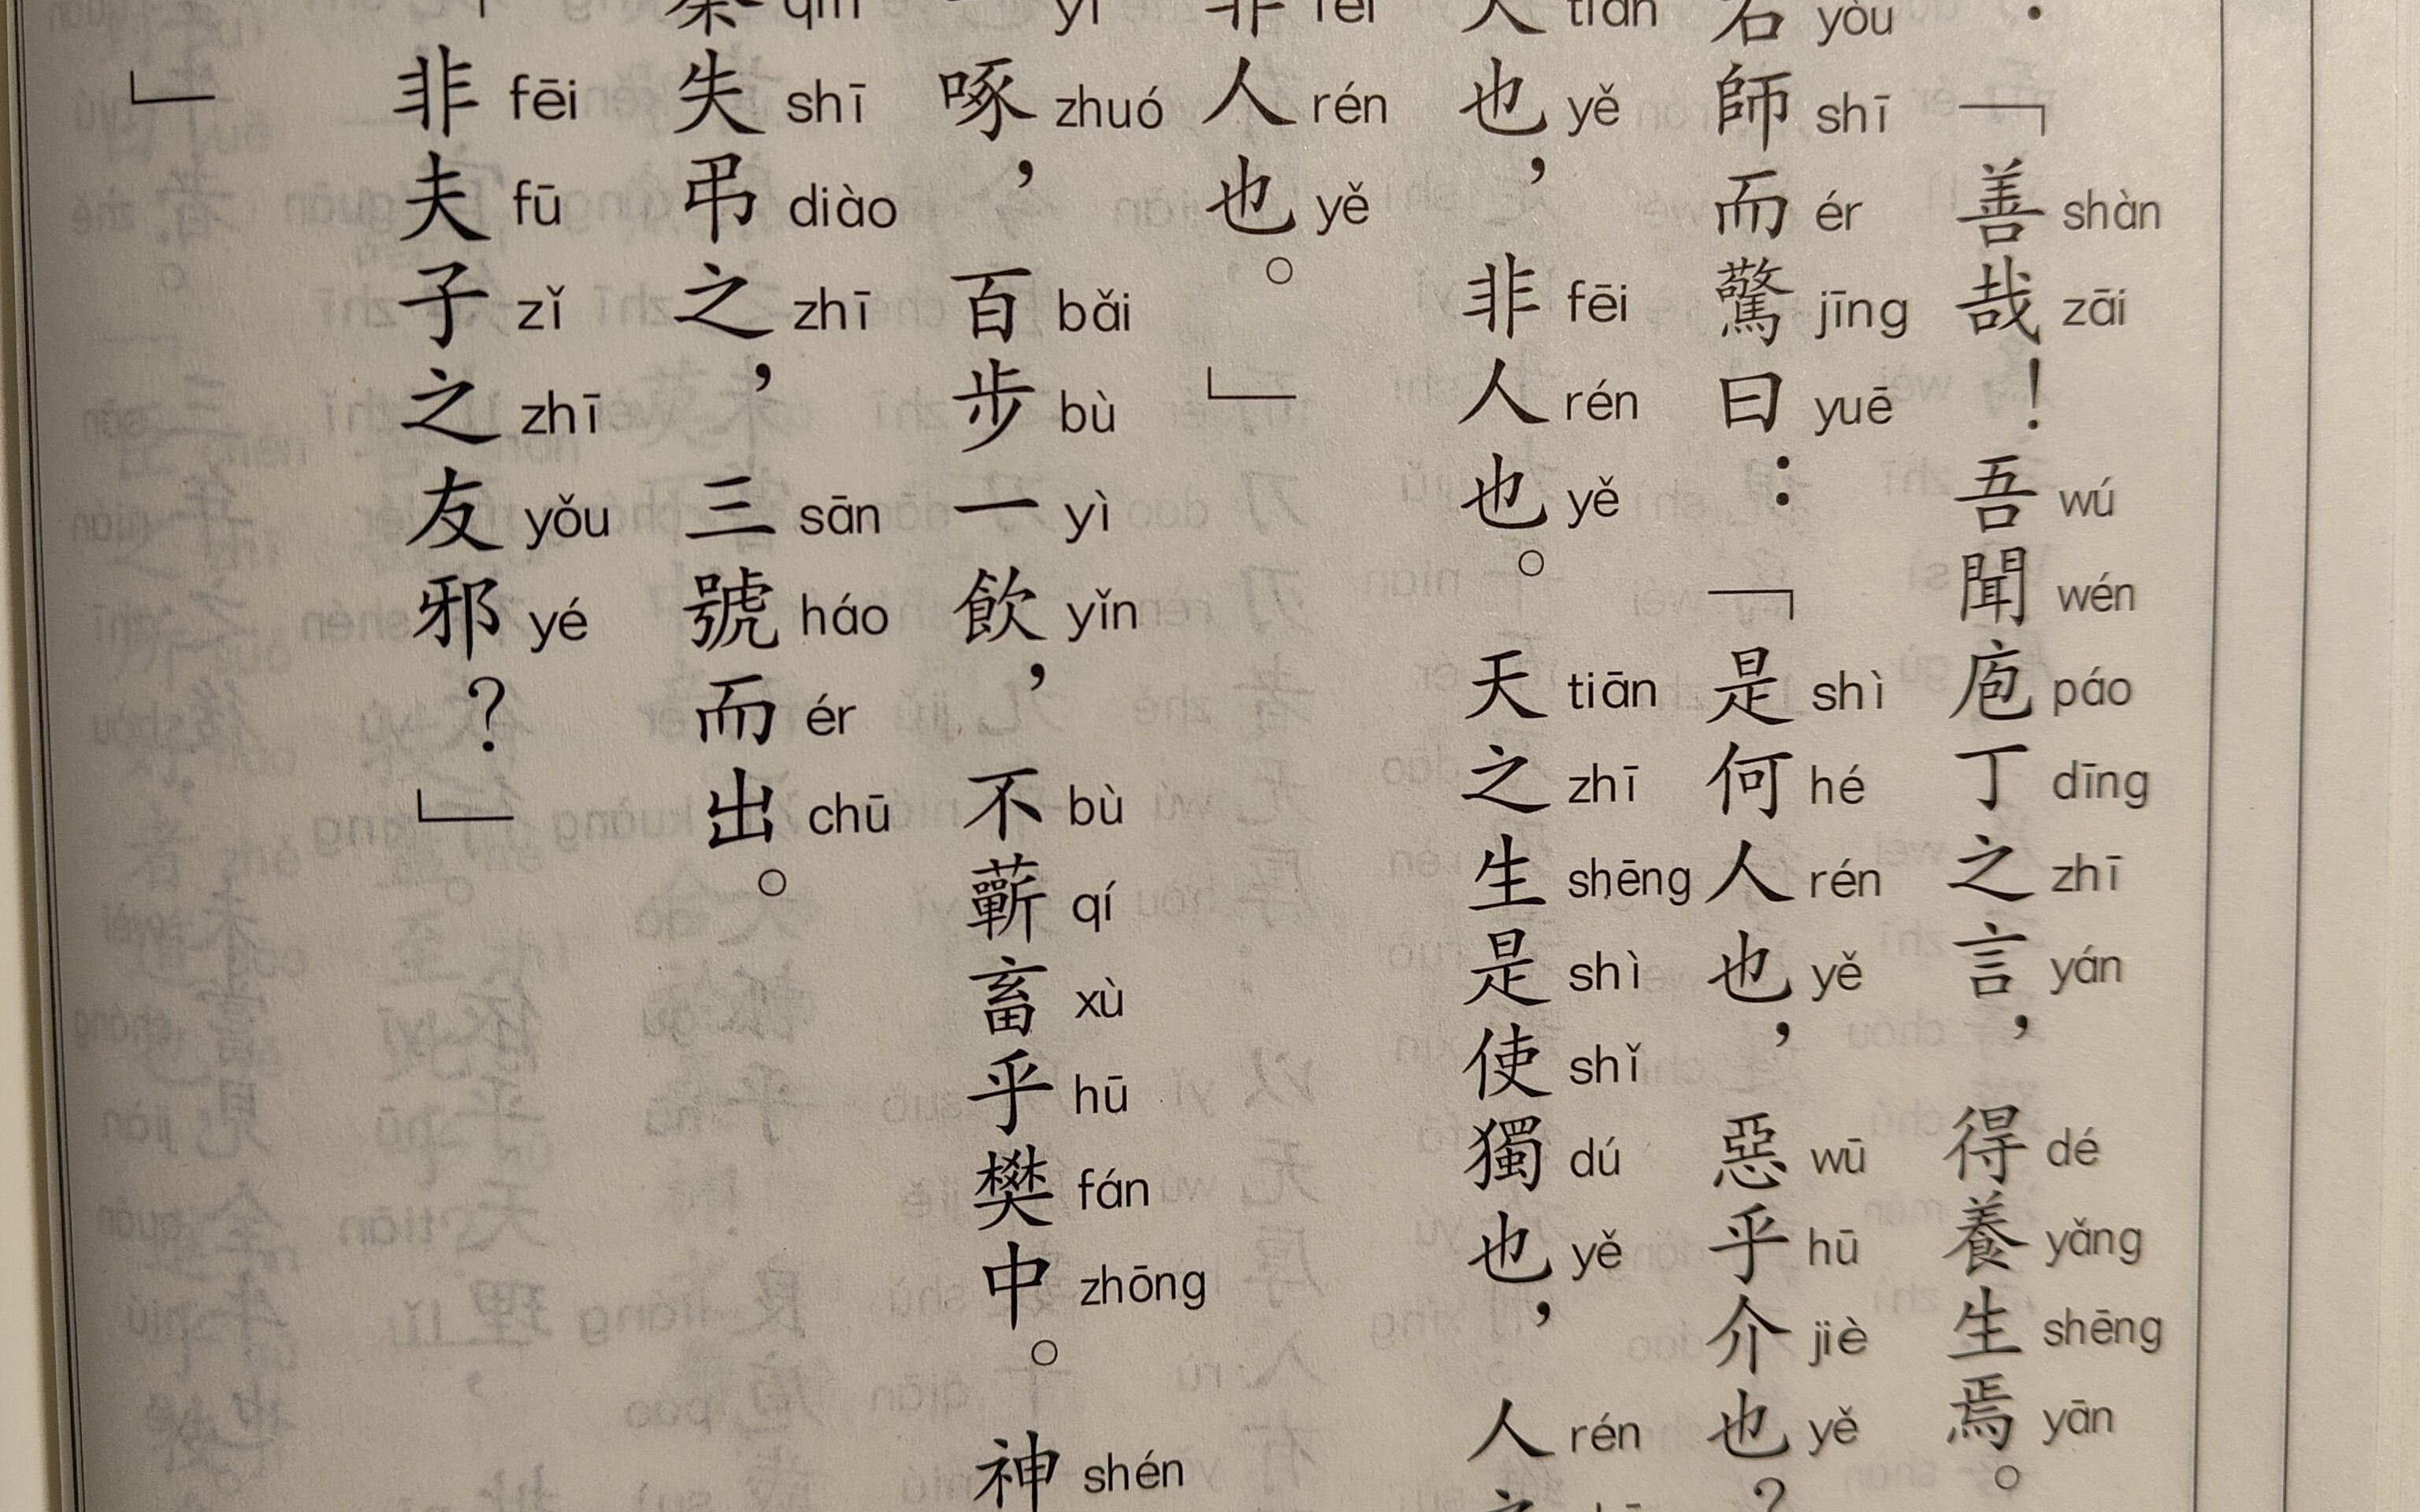 「善哉！吾聞庖丁之言，得養生焉。
shàn zāi wú wén páo dīng zhī yán dé yǎng shēng yān
右師而驚曰：「是何人也，惡乎介也？
yòu shī ér jīng yuē shì hé rén yě wū hū jiè yě
天也，非人也。天之生是使獨也，人
tiān yě fēi rén yě tiān zhī shēng shì shǐ dú yě rén
非人也。」
fēi rén yě
一啄，百步一飲，不蘄畜乎樊中。神
yì zhuó bǎi bù yì yǐn bù qí xù hū fán zhōng shén
秦失弔之，三號而出。
qín shī diào zhī sān háo ér chū
非夫子之友邪？」
fēi fū zǐ zhī yǒu yé
」